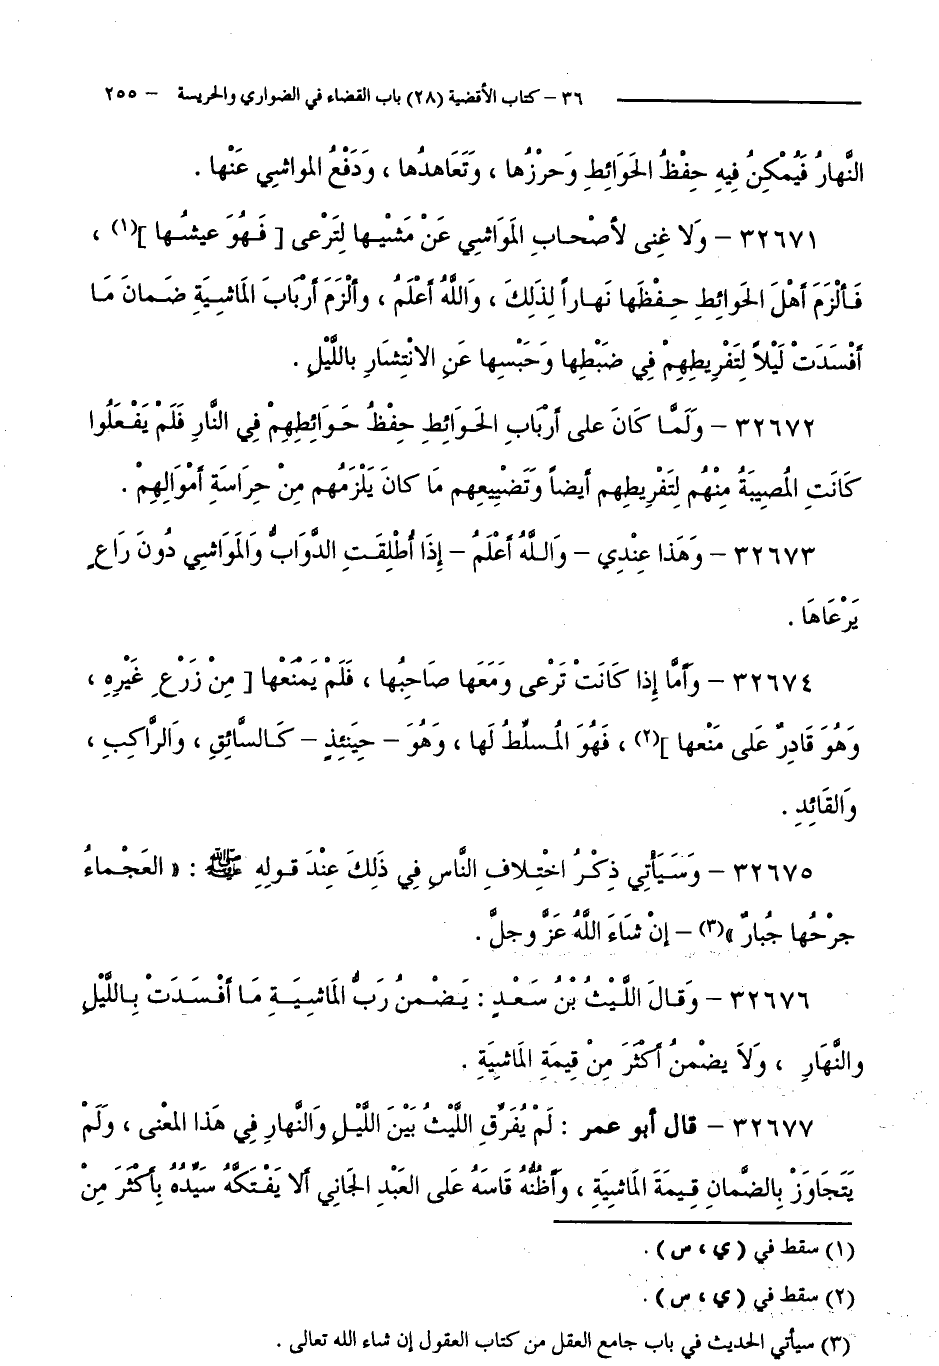 ٣٦ – كتاب الأقضية (٢٨) باب القضاء في الضواري والحريسة – ٢٥٥
النَّهارُ فَيُمْكِنُ فِيهِ حِفْظُ الحَوَائِطِ وَحَرْزُها ، وَتَعَاهدُها ، وَدَفْعُ المواشِي عَنْها .
٣٢٦٧١ – وَلَا غِنى لأصْحابِ المَوَاشِي عَنْ مَشْيِها لِتَرْعى [ فَهُوَ عيشُها ](١) ،
فَألْزَمَ أهْلَ الحَوائطِ حِفْظَها نَهاراً لِذلِكَ ، وَاللَّهُ أعْلَمُ ، وألْزَمَ أرْبَابَ المَاشِيَةِ ضَمانَ مَا
أفْسَدَتْ لَيْلاً لِتَفْرِيطِهِمْ فِي ضَبْطِها وَحَبْسِها عَنِ الانْتشَارِ بِاللَّيْلِ .
٣٢٦٧٢ – وَلَمَّا كَانَ على أرْبَابِ الحَوَائطِ حِفْظُ حَوَائِطِهِمْ فِي النَّارِ فَلَمْ يَفْعَلُوا
كَانَتِ المُصِيبَةُ مِنْهُم لِتَفْرِيطِهِم أيضاً وَتَضْيِيعِهِم مَا كانَ يَلْزَمُهم مِنْ حِرَاسَةِ أمْوَالِهِمْ .
٣٢٦٧٣ – وَهَذا عِنْدِي – وَاللَّهُ أعْلَمُ – إِذَا أُطْلِقَتِ الدَّوَابُّ وَالمَوَاشِي دُونَ رَاعٍ
يَرْعَاهَا .
٣٢٦٧٤ – وَأمَّا إِذا كَانَتْ تَرْعى وَمَعَها صَاحِبُها ، فَلَمْ يَمْنَعْها [ مِنْ زَرْعِ غَيْرِهِ ،
وَهُوَ قَادِرٌ عَلى مَنْعها ](٢) ، فَهُوَ المُسلِّطُ لَها ، وَهُوَ – حِينَئِذٍ – كَالسَّائِقِ ، وَالرَّاكِبِ ،
وَالقَائِدِ .
٣٢٦٧٥ – وَسَيَأْتِي ذِكْرُ اخْتِلافِ النَّاسِ فِي ذَلِكَ عِنْدَ قولِهِ ﷺ : « العَجْماءُ
جرْحُها جُبارٌ »(٣) – إِنْ شَاءَ اللَّهُ عَزَّ وجلَّ .
٣٢٦٧٦ – وَقالَ اللَّيْثُ بْنُ سَعْدٍ : يَضْمنُ رَبُّ المَاشِيَةِ مَا أفْسَدَتْ بِاللَّيْلِ
والنَّهَارِ ، وَلَا يضْمنُ أكْثَرَ مِنْ قِيمَةِ المَاشِيَةِ .
٣٢٦٧٧ – قال أبو عمر : لَمْ يُفَرِّقِ اللَّيْثُ بَيْنَ اللَّيْلِ وَالنَّهارِ فِي هَذا المعْنى ، وَلَمْ
يَتَجَاوَزْ بِالضَّمانِ قِيمَةَ المَاشِيَةِ ، وَأظُنُّهُ قَاسَهُ عَلى العَبْدِ الجَانِي ألا يَفْتكَّهُ سَيِّدُهُ بِأكْثَرَ مِنْ
(١) سقط في ( ي ، س ) .
(٢) سقط في ( ي ، س ) .
(٣) سيأتي الحديث في باب جامع العقل من كتاب العقول إن شاء الله تعالى .